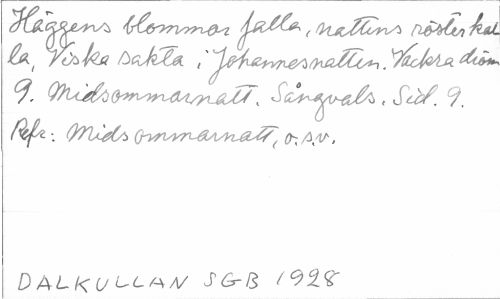 Häggens blommor falla, nattens röster kal
la, Viska sakta i Johannesnatten. Vackra dröm
9. Midsommarnatt. Sångvals. Sid. 9.
Refr: Midsommarnatt, o.s.v.
DALKULLAN SGB 1928